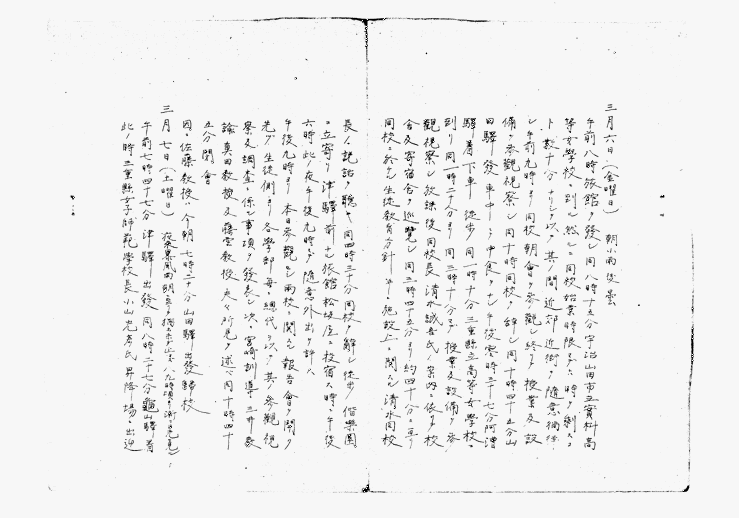 三月六日（金曜日） 朝小雨後曇
午前八時旅館ヲ發シ同八時十五分宇治山田市立實科高
等女學校ニ到ル然ルニ同校始業時限マデニハ時ヲ剰スコ
ト數十分ナリシヲ以テ其ノ間近郊近街ヲ隨意徜徉
シ午前九時ヨリ同校朝會ヲ參觀シ終リテ授業及設
備ヲ參觀視察シ同十時同校ヲ辭シ同十時四十五分山
田驛ヲ發シ車中ニテ中食ヲナシ午後零時三十七分阿漕
驛ニ着下車 徒歩 同一時十分三重縣立高等女學校ニ
到リ同一時二十分ヨリ同三時十分マデ授業及設備ヲ參
觀視察シ放課後同校長清水誠吾氏ノ案内ニ依リテ校
舍及寄宿舍ヲ巡覽シ同三時四十五分ヨリ約四十分ニ亘リ
同校ニ於ケル生徒教育方針 施設 ニ關シ清水同校
長ノ説話ヲ聽キ同四時三十分同校ヲ辭シ徒歩ニテ偕樂園
ニ立寄リ津驛前ナル旅館松坂屋ニ投宿ス時ニ午後
六時此ノ夜午後九時マデ隨意外出ヲ許ス
午後九時ヨリ本日參觀セシ兩校ニ關スル報告會ヲ開ク
先ヅ生徒側ヨリ各學部毎ニ總代ヲ以テ其ノ參觀視
察及調査ニ係ル事項ヲ發表シ次ニ宮崎訓導、三井教
諭、眞田教授及藤雲教授夫々所見ヲ述ベ同十時四十
五分閉會
因ニ佐藤教授ハ今朝七時二十分山田驛出發歸校
三月七日（土曜日）
午前七時四十七分津驛出發同八時二十七分龜山驛ニ着
此ノ時三重縣女子師範學校長小山忠 氏昇降場ニ出迎